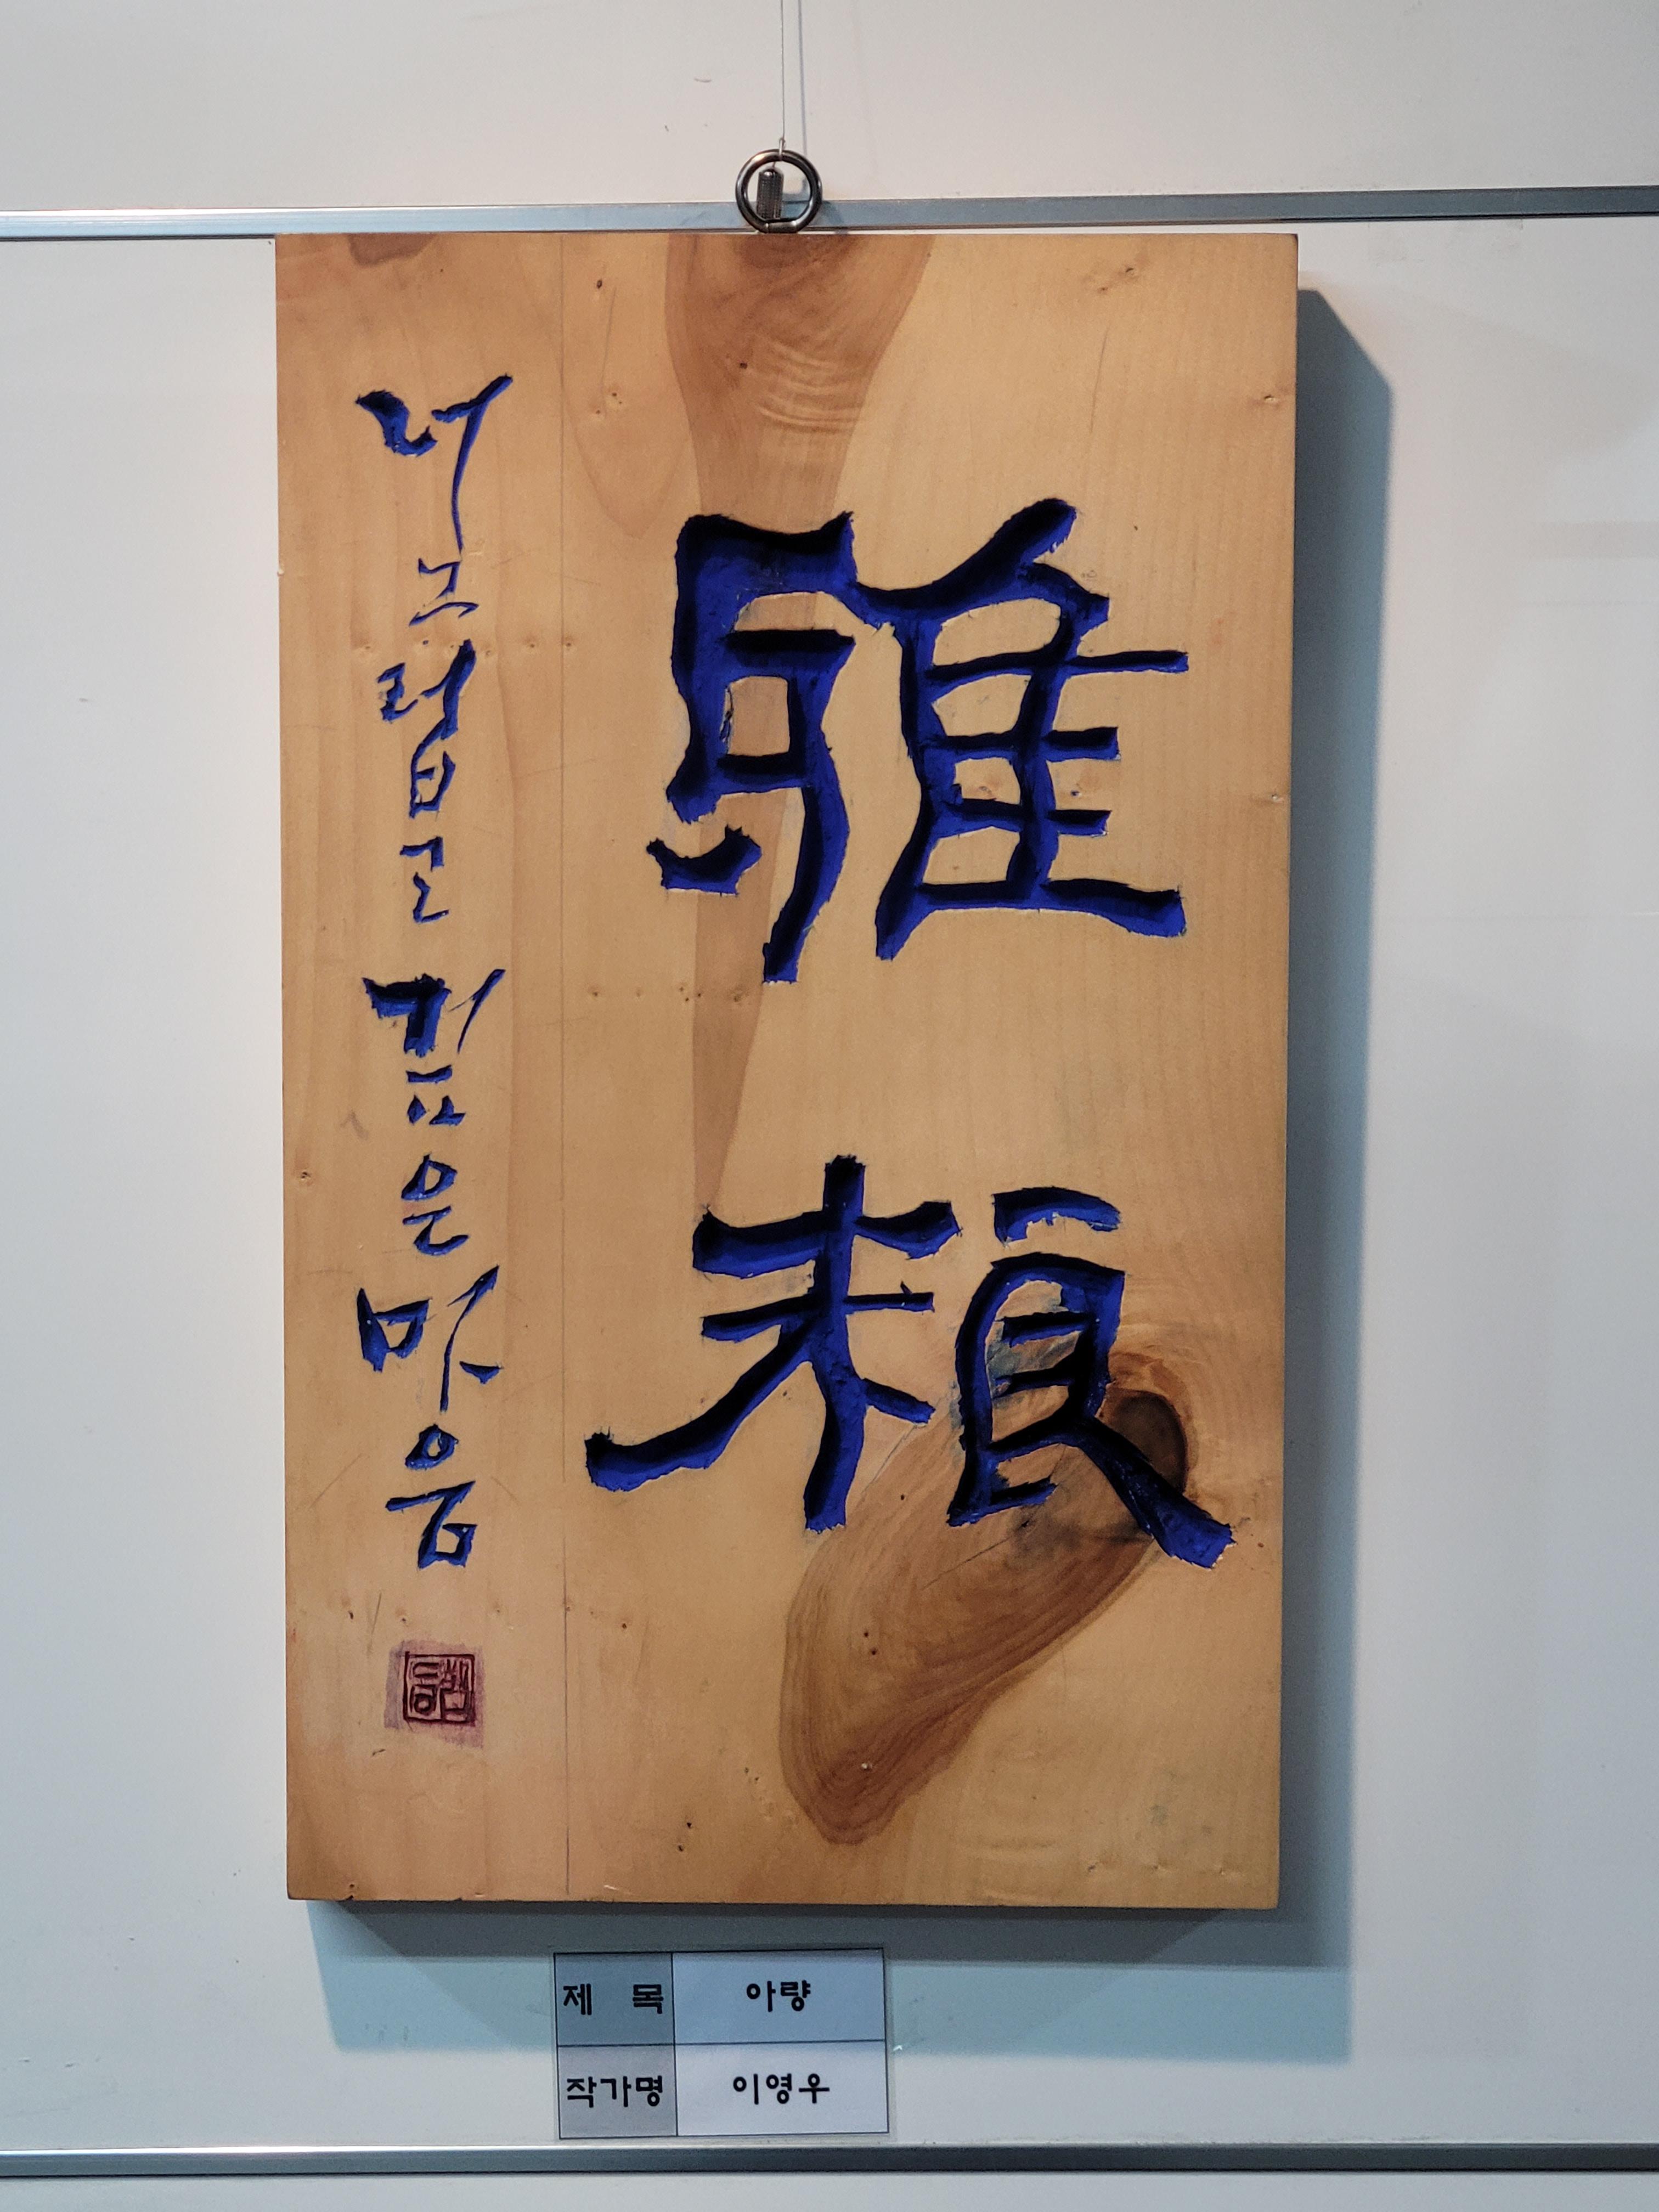 雅
너그럽고 깊은 마음
제 목 아량
작가명 이영우